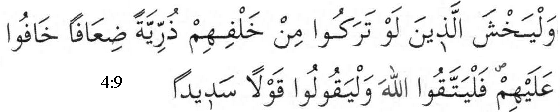 وَلْيَخْشَ الَّذِينَ لَوْ تَرَكُوا مِنْ خَلْفِهِمْ ذُرِّيَّةً ضِعَافًا خَافُوا
عَلَيْهِمْ فَلْيَتَّقُوا اللَّهَ وَلْيَقُولُوا قَوْلًا سَدِيدًا 4:9